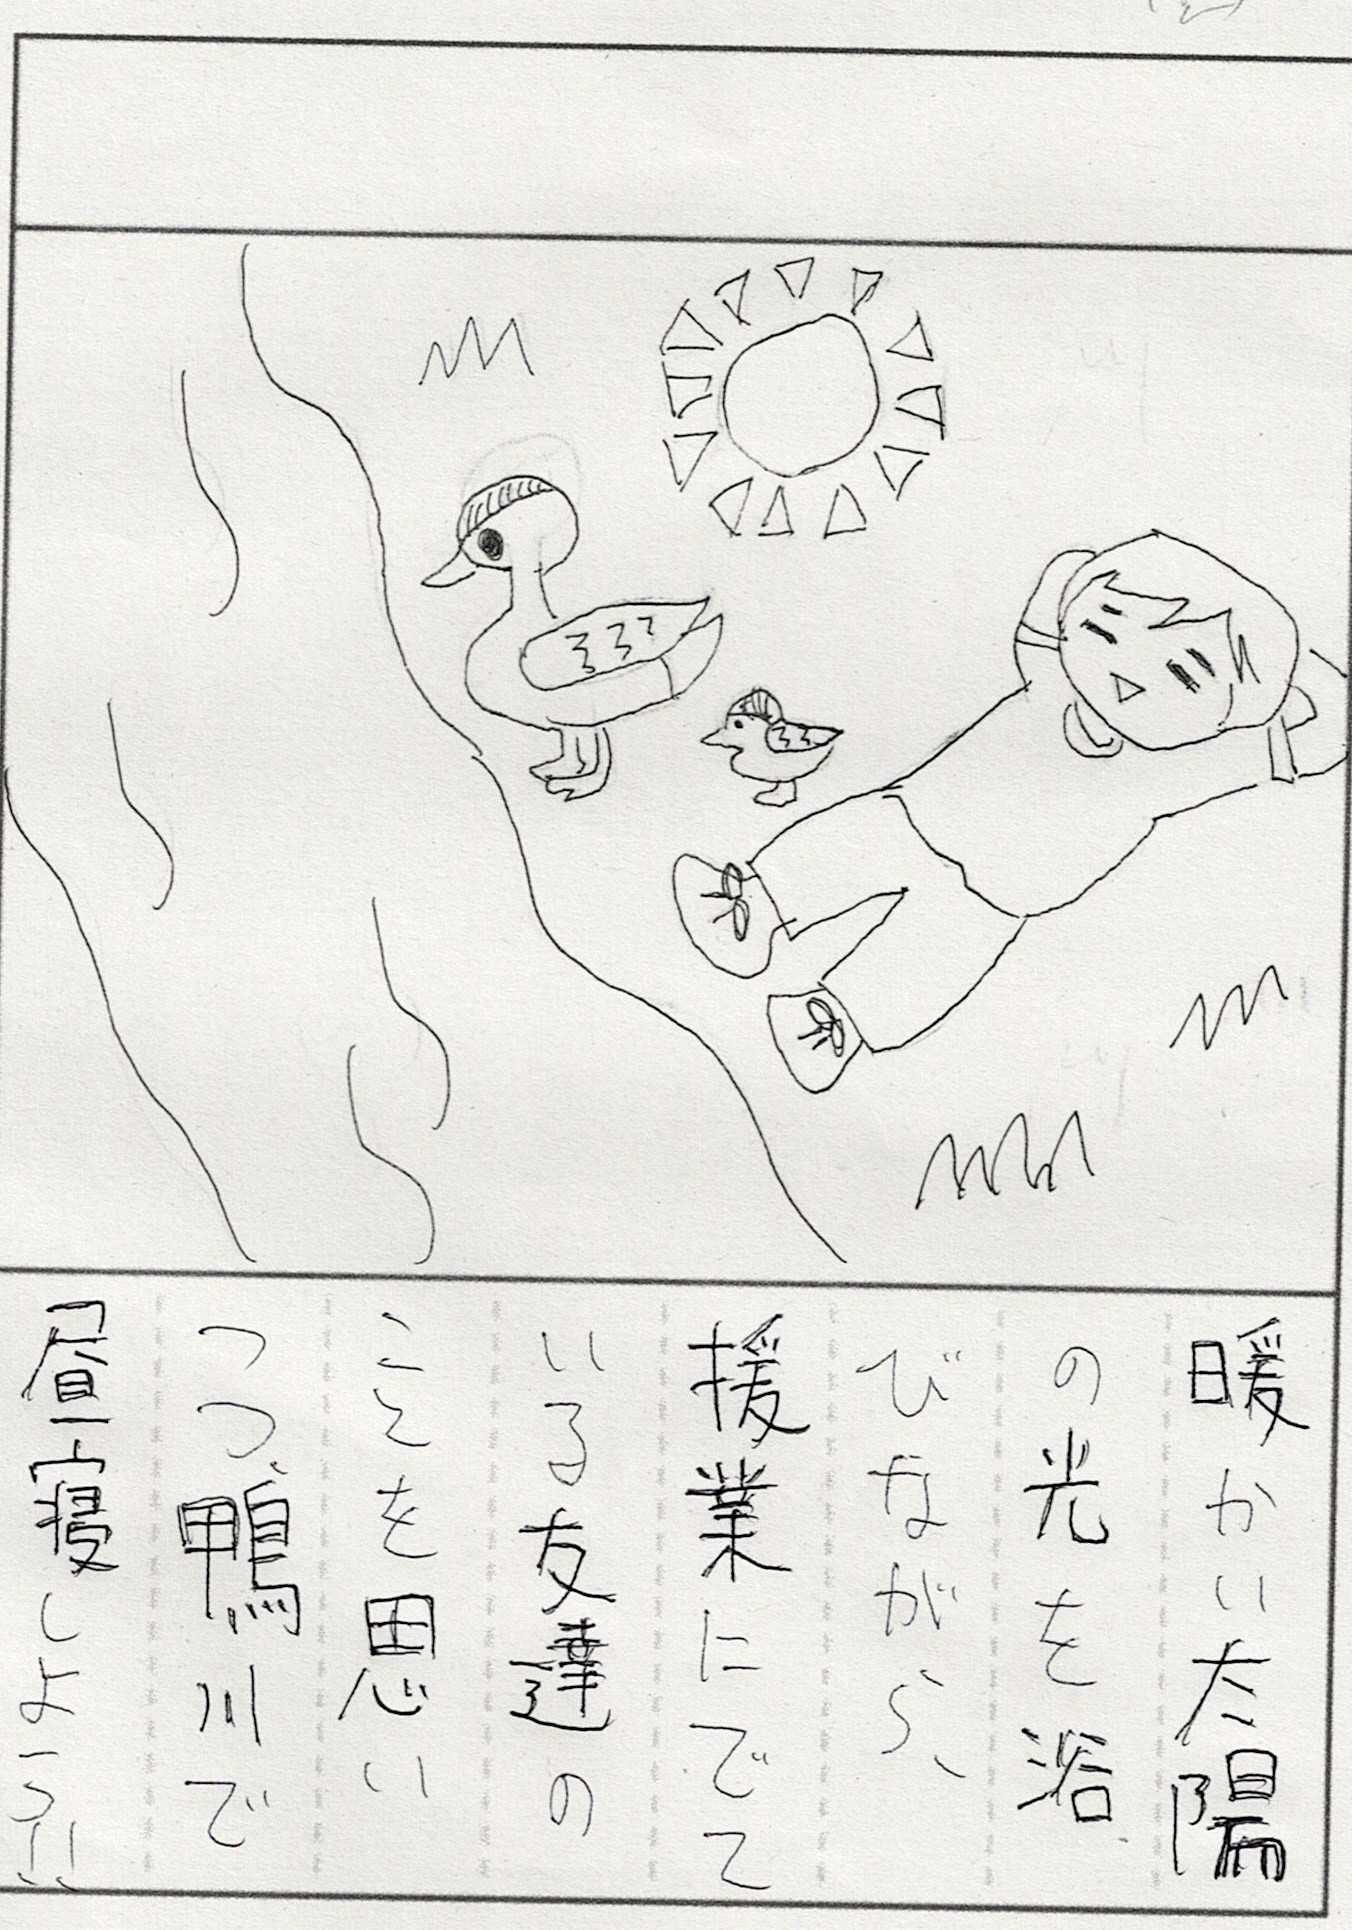 暖かい太陽
の光を浴
びながら、
援業にでて
いる友達の
ことを思い
つつ、鴨川で
昼寝しよう!!